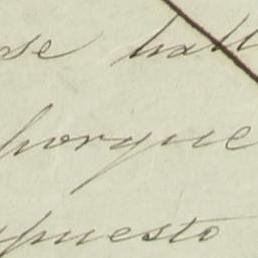 se hall
porque
puesto